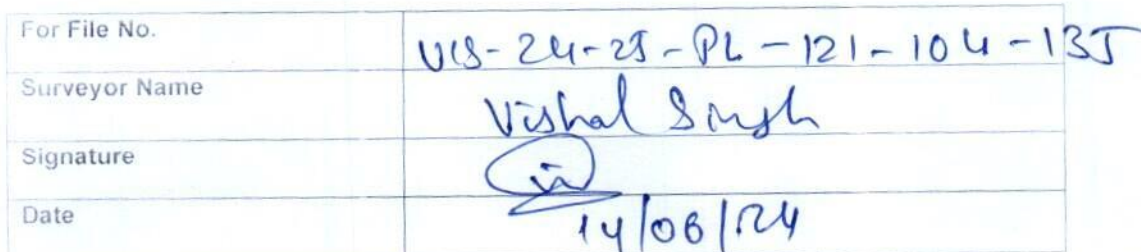 For File No. VIS-24-25-PL-121-104-135
Surveyor Name Vishal Singh
Signature
Date 14/06/24